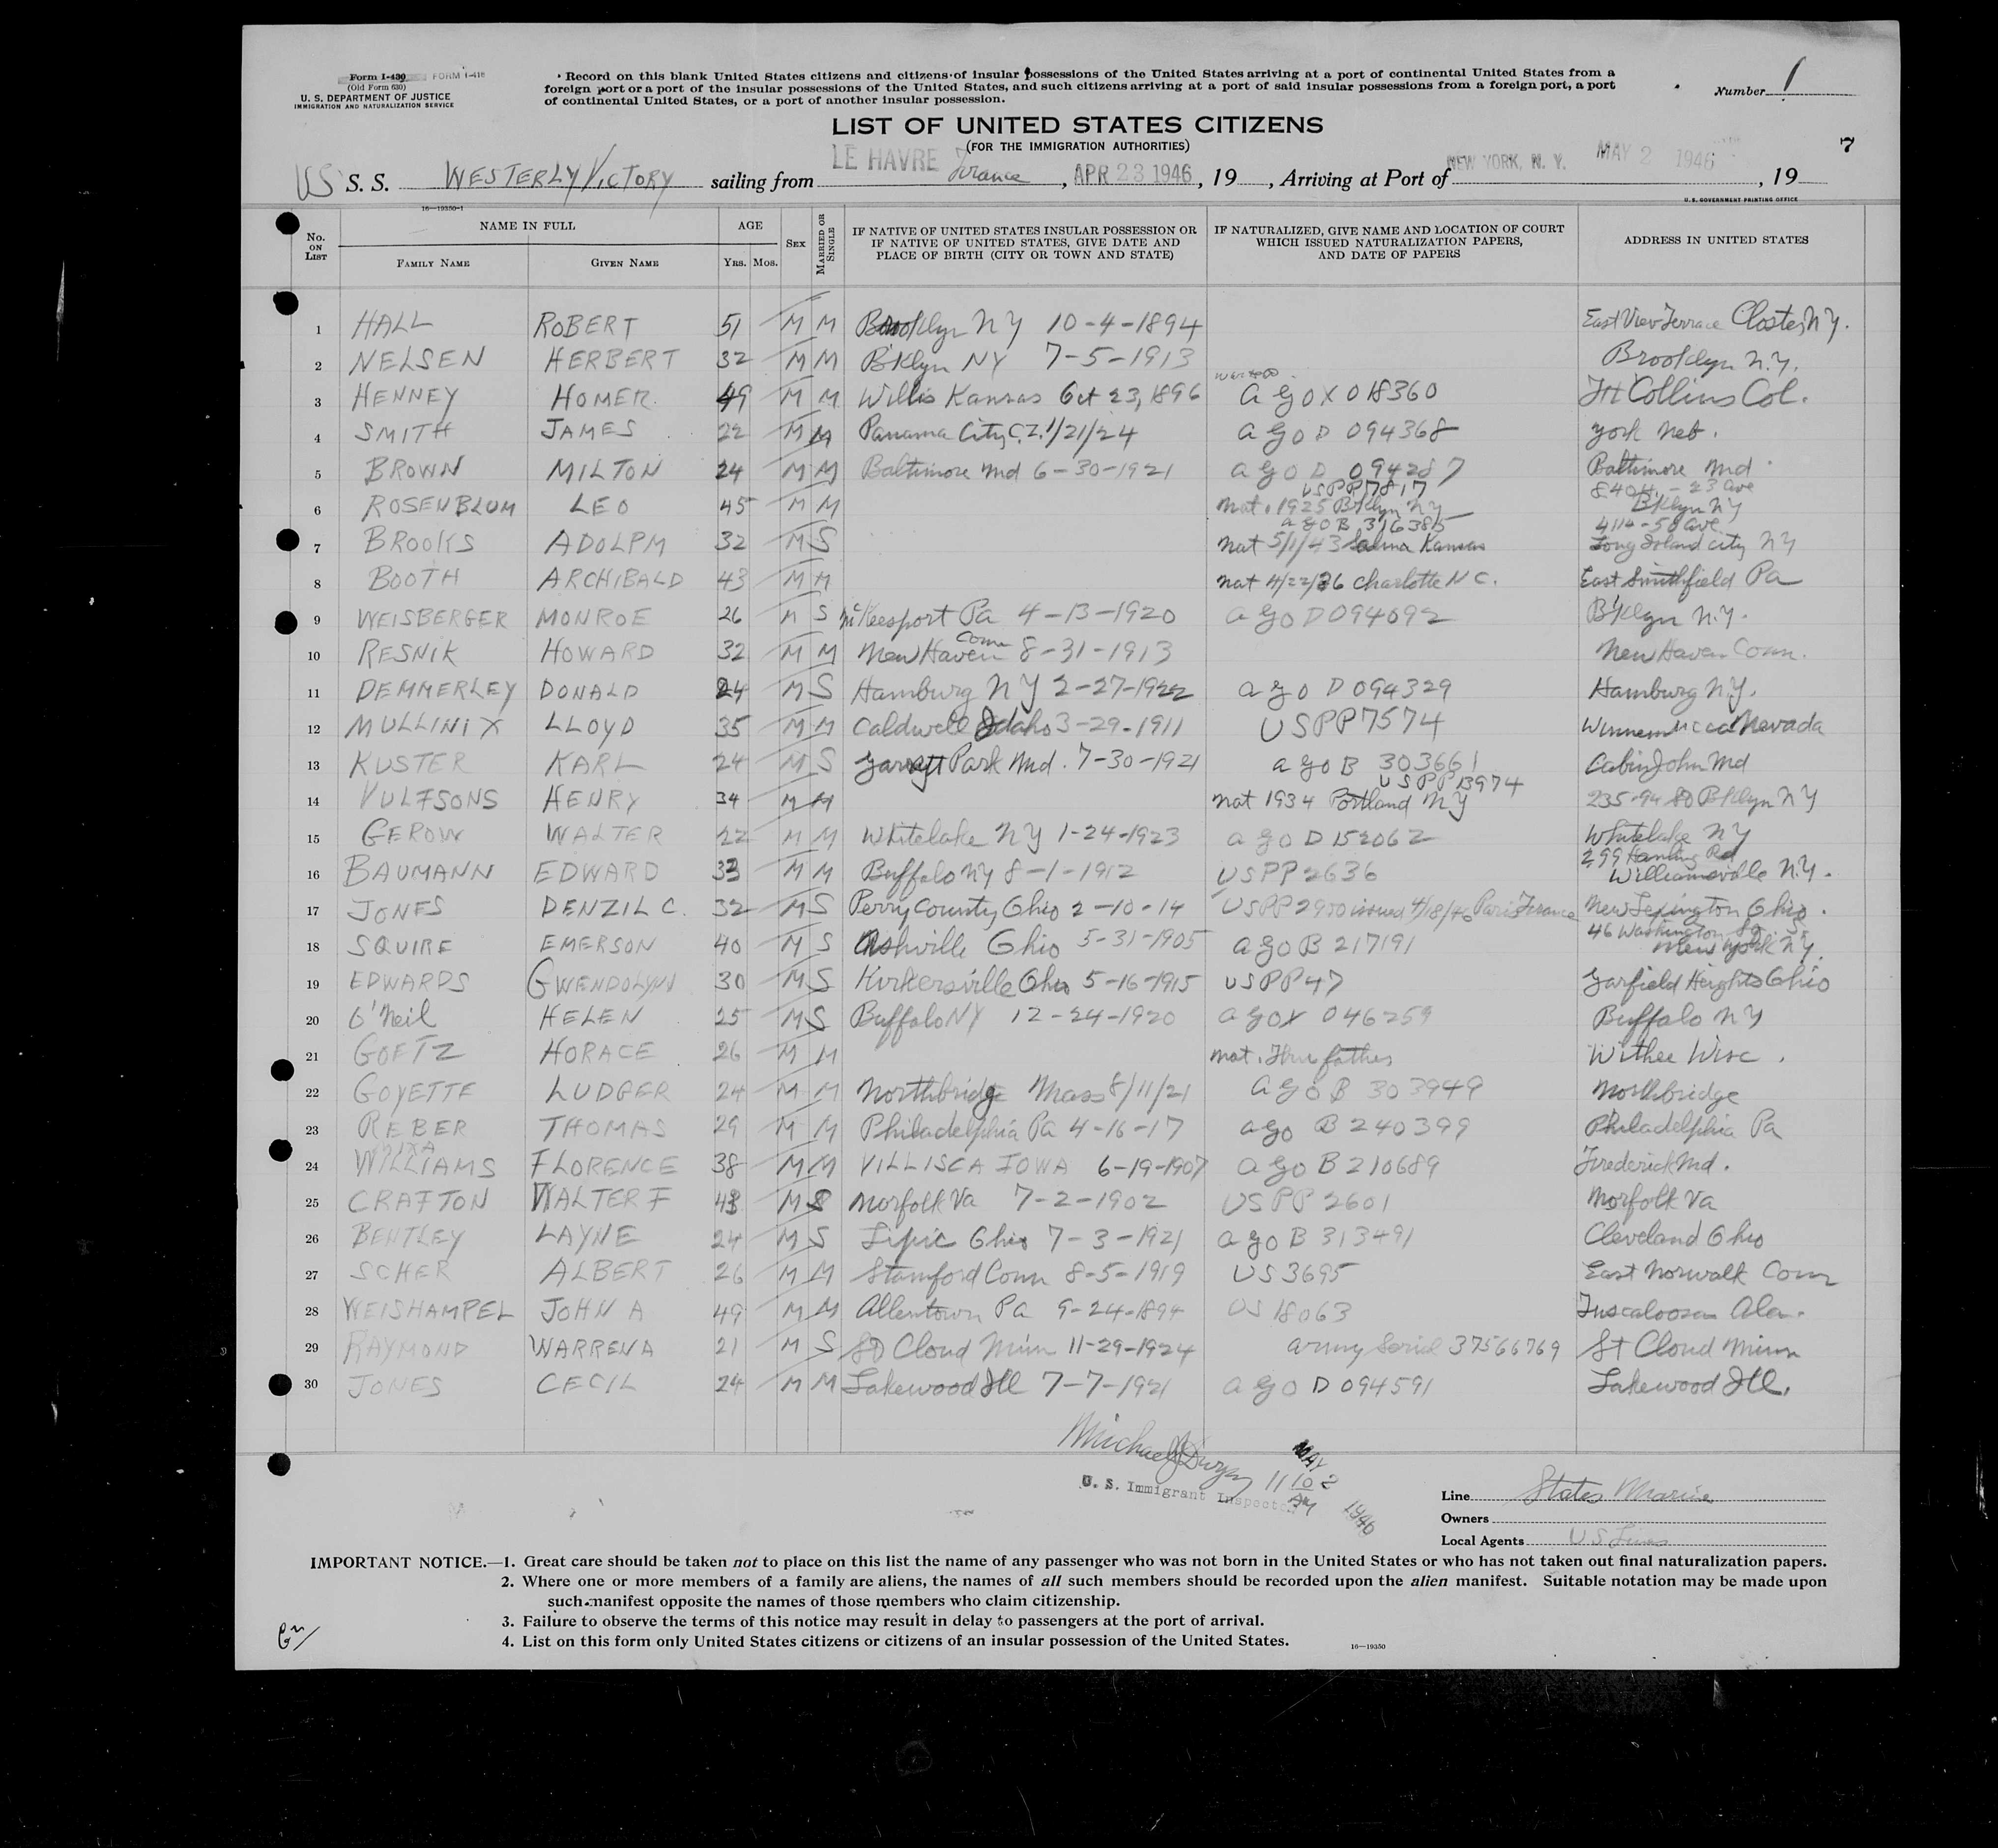 Form I-430 FORM I-418
(Old Form 630)
U. S. DEPARTMENT OF JUSTICE
IMMIGRATION AND NATURALIZATION SERVICE
Record on this blank United States citizens and citizens of insular possessions of the United States arriving at a port of continental United States from a
foreign port or a port of the insular possessions of the United States, and such citizens arriving at a port of said insular possessions from a foreign port, a port
of continental United States, or a port of another insular possession.
Number 1
LIST OF UNITED STATES CITIZENS
(FOR THE IMMIGRATION AUTHORITIES)
7
US S. S. WESTERLY VICTORY sailing from LE HAVRE France, APR 23 1946, 19 , Arriving at Port of NEW YORK, N. Y. MAY 2 1946, 19
16—19350-1
U. S. GOVERNMENT PRINTING OFFICE
No. ON LIST NAME IN FULL FAMILY NAME GIVEN NAME AGE YRS. MOS. SEX MARRIED OR SINGLE IF NATIVE OF UNITED STATES INSULAR POSSESSION OR IF NATIVE OF UNITED STATES, GIVE DATE AND PLACE OF BIRTH (CITY OR TOWN AND STATE) IF NATURALIZED, GIVE NAME AND LOCATION OF COURT WHICH ISSUED NATURALIZATION PAPERS, AND DATE OF PAPERS ADDRESS IN UNITED STATES
1 HALL ROBERT 51 M M Brooklyn NY 10-4-1894 East View Terrace Closter, NY.
2 NELSEN HERBERT 32 M M B'klyn NY 7-5-1913 Brooklyn N.Y.
3 HENNEY HOMER. 49 M M Willis Kansas Oct 23, 1896 ago X 018360 Ft Collins Col.
4 SMITH JAMES 22 M M Panama City, C.Z. 1/21/24 ago D 094368 York Neb.
5 BROWN MILTON 24 M M Baltimore Md 6-30-1921 ago D 094287 Baltimore Md
6 ROSENBLUM LEO 45 M M USPP7817 nat. 1925 Bklyn NY 23 Ave Bklyn NY
7 BROOKS ADOLPM 32 M S ago B 316385 nat 5/1/43 Salina Kansas 4114-50 ave Long Island City NY
8 BOOTH ARCHIBALD 43 M M nat 4/22/36 Charlotte N C. East Smithfield Pa
9 WEISBERGER MONROE 26 M S McKeesport Pa 4-13-1920 ago D 094092 B'klyn N.Y.
10 RESNIK HOWARD 32 M M New Haven Conn 8-31-1913 New Haven Conn.
11 DEMMERLEY DONALD 24 M S Hamburg NY 2-27-1922 ago D 094329 Hamburg N.Y.
12 MULLINIX LLOYD 35 M M Caldwell Idaho 3-29-1911 USPP7574 Winnemucca Nevada
13 KUSTER KARL 24 M S Garrett Park Md. 7-30-1921 ago B 303661 Cabin John Md
14 VULFSONS HENRY 34 M M USPP13974 nat 1934 Portland NY 235-94 80 Bklyn NY
15 GEROW WALTER 22 M M Whitelake NY 1-24-1923 ago D 152062 Whitelake NY
16 BAUMANN EDWARD 33 M M Buffalo NY 8-1-1912 USPP2636 299 Rd Williamsville N.Y.
17 JONES DENZIL C. 32 M S Perry County, Ohio 2-10-14 USPP 2950 issued 4/18/46 Paris France New Lexington Ohio.
18 SQUIRE EMERSON 40 M S Ashville Ohio 5-31-1905 ago B 217191 46 Washington Sq S. New York NY.
19 EDWARDS GWENDOLYN 30 M S Kirkersville Ohio 5-16-1915 USPP47 Garfield Heights Ohio
20 O'Neil HELEN 25 M S Buffalo NY 12-24-1920 ago X 046259 Buffalo NY
21 GOETZ HORACE 26 M M nat. Thru father Withee Wisc.
22 GOYETTE LUDGER 24 M M Northbridge Mass 8/11/21 ago B 303949 Northbridge
23 REBER THOMAS 29 M M Philadelphia Pa 4-16-17 ago B 240399 Philadelphia Pa
24 WILLIAMS FLORENCE 38 M M VILLISCA IOWA 6-19-1907 ago B 210689 Frederick Md.
25 CRAFTON WALTER F 43 M S Norfolk Va 7-2-1902 USPP 2601 Norfolk Va
26 BENTLEY LAYNE 24 M S Ohio 7-3-1921 ago B 313491 Cleveland Ohio
27 SCHER ALBERT 26 M M Stamford Conn 8-5-1919 US 3695 East Norwalk Conn
28 WEISHAMPEL JOHN A 49 M M Allentown Pa 9-24-1894 US 18063 Tuscaloosa Ala.
29 RAYMOND WARREN A 21 M S St Cloud Minn 11-29-1924 Army Serial 37566769 St Cloud Minn
30 JONES CECIL 24 M M Lakewood Ill 7-7-1921 ago D 094591 Lakewood Ill.
Michael J Dwyer
U. S. Immigrant Inspector
11 10 AM
MAY 2 1946
Line States Marine
Owners
Local Agents US Lines
IMPORTANT NOTICE.—1. Great care should be taken not to place on this list the name of any passenger who was not born in the United States or who has not taken out final naturalization papers.
2. Where one or more members of a family are aliens, the names of all such members should be recorded upon the alien manifest. Suitable notation may be made upon
such manifest opposite the names of those members who claim citizenship.
3. Failure to observe the terms of this notice may result in delay to passengers at the port of arrival.
4. List on this form only United States citizens or citizens of an insular possession of the United States.
16—19350